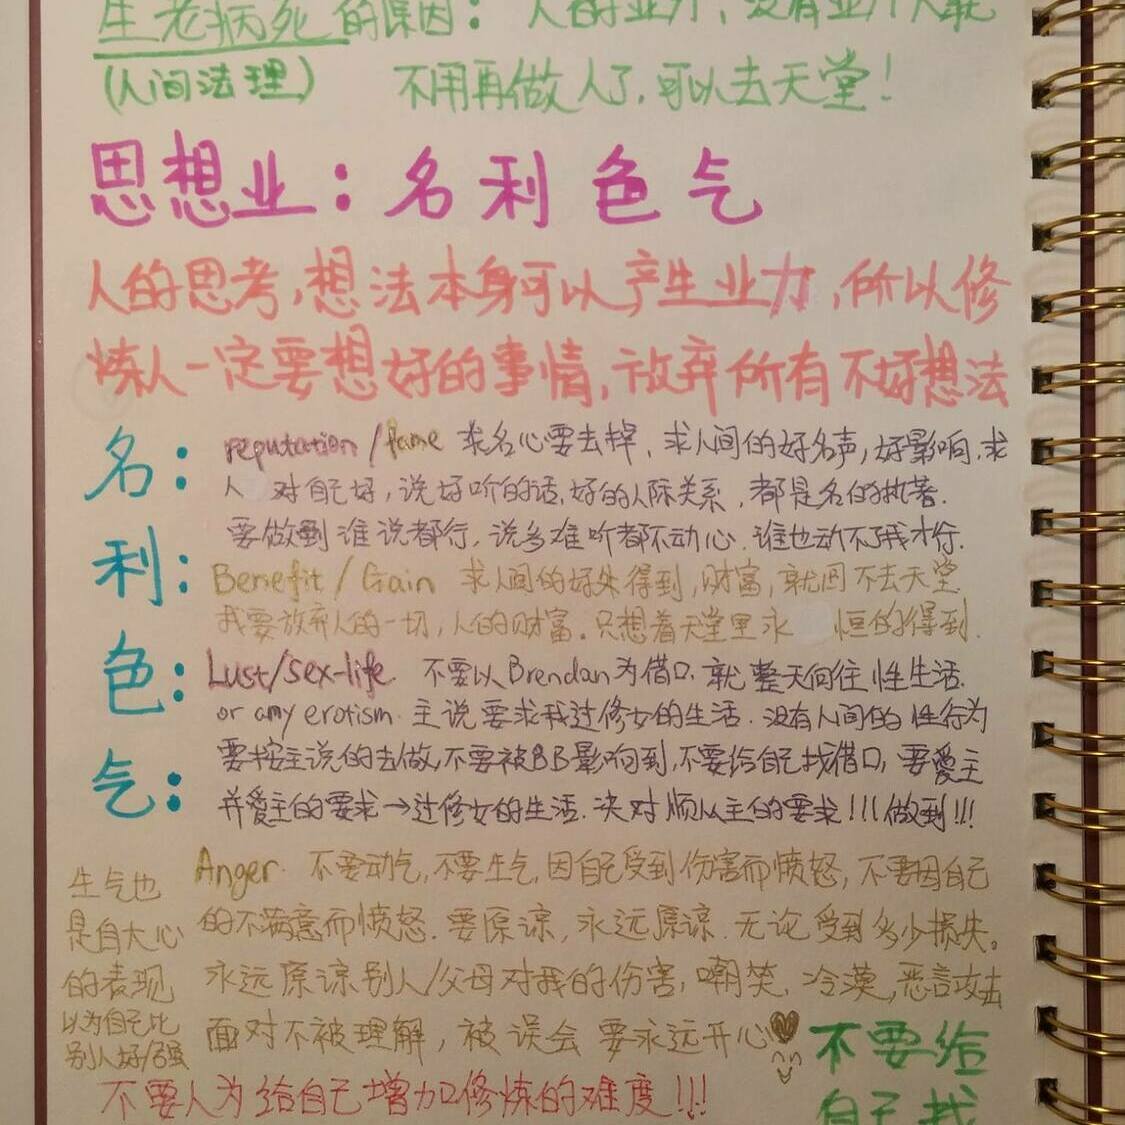 生老病死的原因：人的业力，没有业力人就
(人间法理) 不用再做人了，可以去天堂！
思想业：名利色气
人的思考，想法本身可以产生业力，所以修
炼人一定要想好的事情，放弃所有不好想法
名： reputation / fame 求名心要去掉，求人间的好名声，好影响，求
人 对自己好，说好听的话，好的人际关系，都是名的执著．
要做到谁说都行，说多难听都不动心．谁也动不了我才行．
利： Benefit / Gain 求人间的好失得到，财富，就回不去天堂
我要放弃人的一切，人的财富．只想着天堂里永 恒的得到．
色： Lust/sex-life. 不要以Brendan为借口．就整天向往性生活．
or amy erotism. 主说要求我过修女的生活．没有人间的性行为
气： 要按主说的去做，不要被BB影响到，不要给自己找借口，要愛主
并愛主的要求→过修女的生活．决对顺从主的要求！！！做到！！！
Anger. 不要动气，不要生气，因自己受到伤害而愤怒，不要因自己
的不满意而愤怒．要原谅，永远原谅．无论受到多少损失。
永远原谅别人/父母对我的伤害，嘲笑，冷漠，恶言攻击
面对不被理解，被误会 要永远开心
生气也
是自大心
的表现
以为自己比
别人好/强
不要人为给自己增加修炼的难度！！！
不要给
自己找